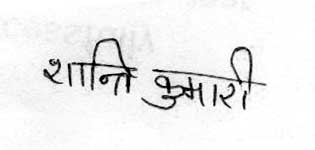 शान्ति कुमारी